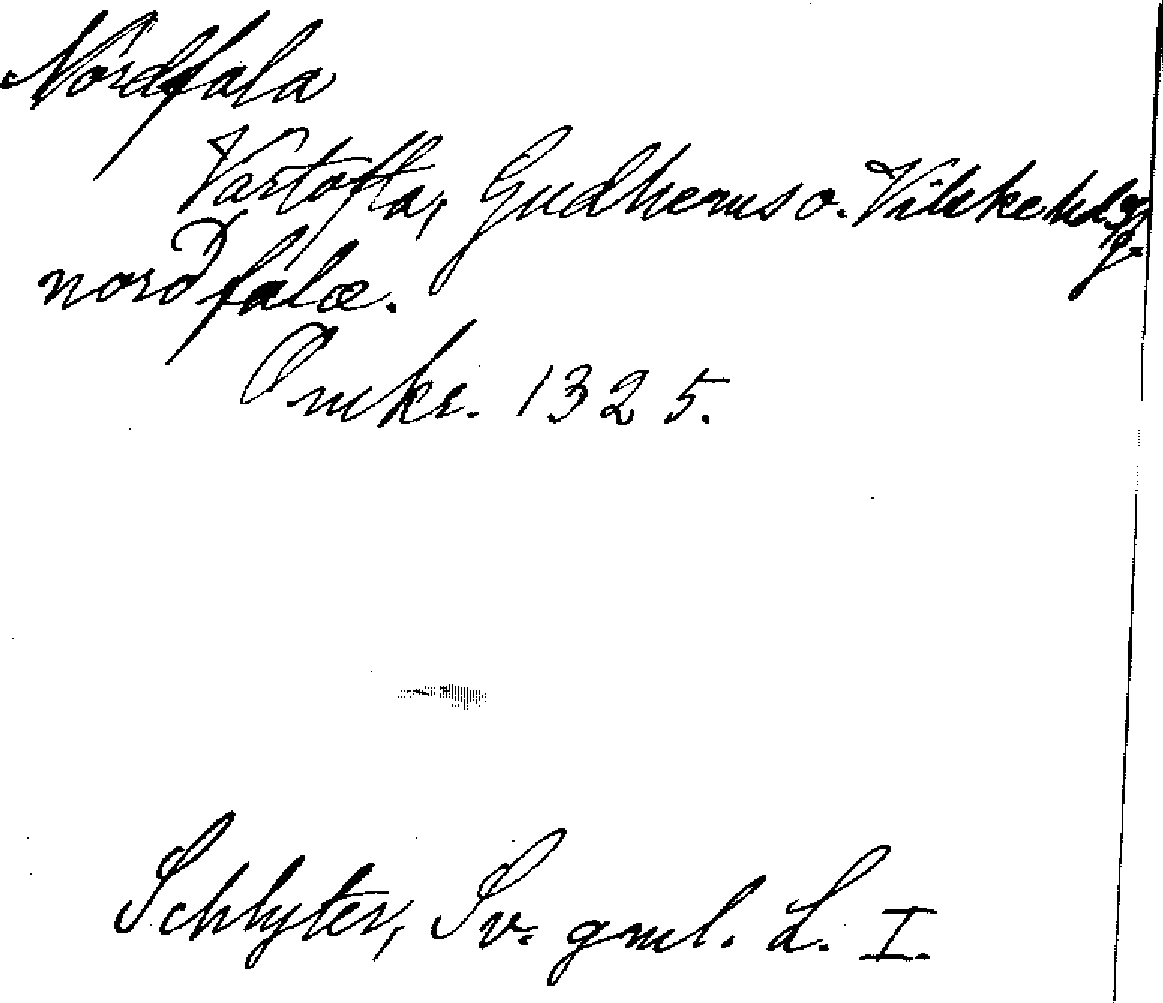 Nordfala
Vartofta, Gudhems o. Vilske hd
nordfalæ.
Omkr. 1325.
Schlyter, Sv. gml. L. I.